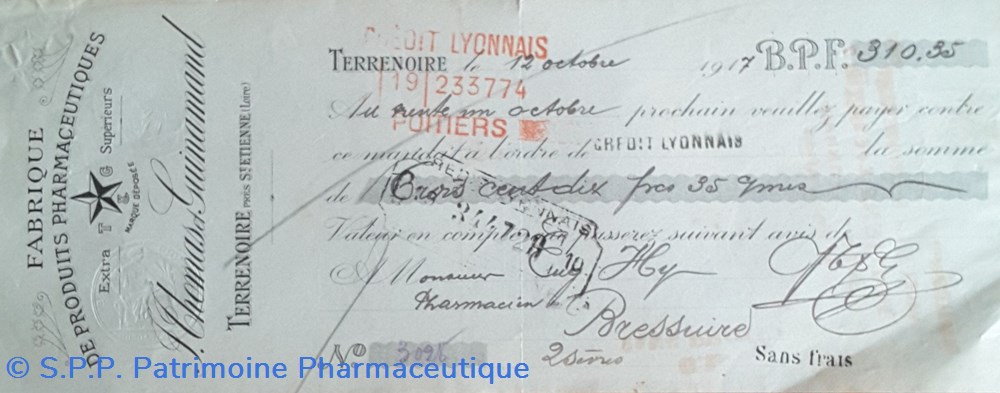 FABRIQUE
DE PRODUITS PHARMACEUTIQUES
Extra T G Supérieurs
MARQUE DÉPOSÉE
Thomas & Guinamand
TERRENOIRE PRÈS ST ETIENNE (Loire)
CRÉDIT LYONNAIS
19 233774
POITIERS
TERRENOIRE le 12 octobre 1917 B.P.F. 310.35
Au trente un octobre prochain veuillez payer contre
ce mandat à l'ordre de CREDIT LYONNAIS la somme
de Trois cent dix frcs 35 cmes
Valeur en compte que passerez suivant avis de
A Monsieur Eug. Hy T & G
Pharmacien de 1e
Bressuire
Nº 3026 2 Sèvres Sans frais
© S.P.P. Patrimoine Pharmaceutique